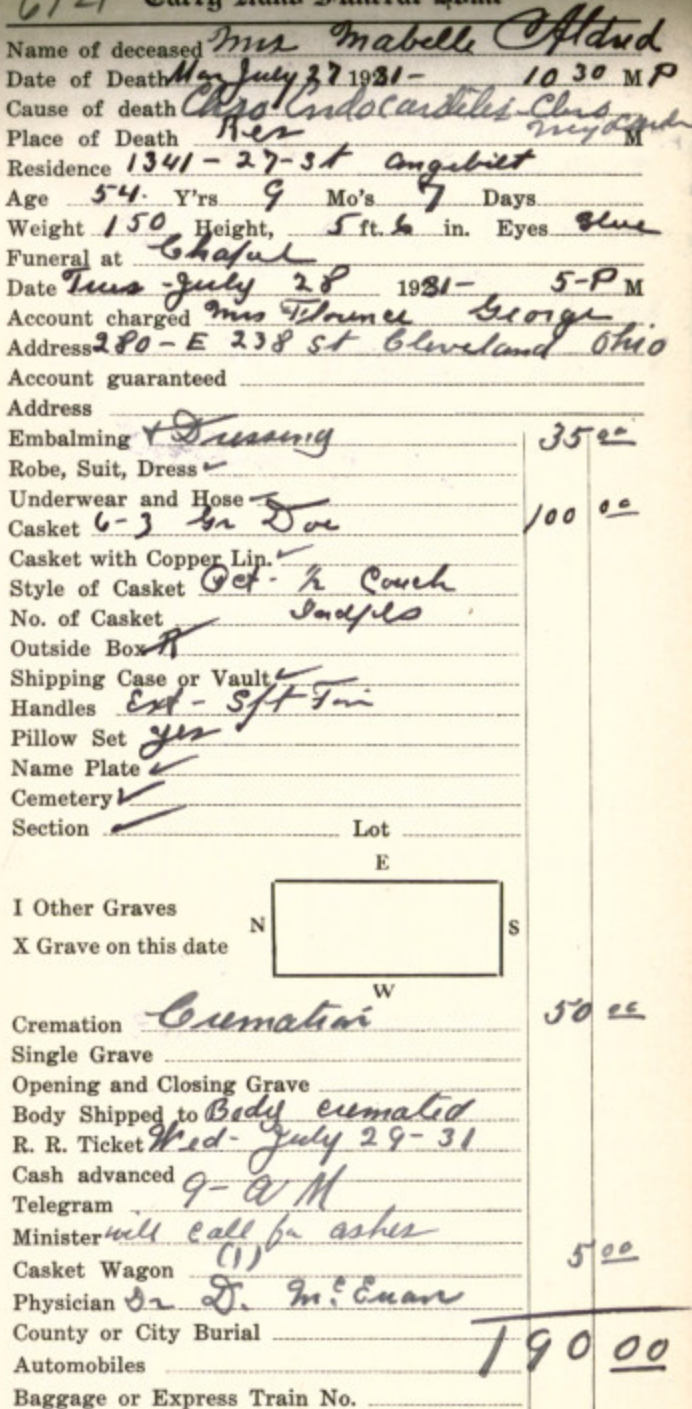 Carry Hand Funeral Home
Name of deceased Mrs Mabelle C Aldred
Date of Death Mon July 27 1931- 10 30 M P
Cause of death Chro Endocarditis-Chro
Place of Death Res M
Residence 1341-27-St Angebilt
Age 54. Y'rs 9 Mo's 7 Days
Weight 150 Height, 5 ft. 6 in. Eyes Blue
Funeral at Chapel
Date Tues-July 28 1931- 5-P M
Account charged Mrs Florence George
Address 280-E 238 St Cleveland Ohio
Account guaranteed
Address
Embalming + Dressing 35 00
Robe, Suit, Dress
Underwear and Hose
Casket 6-3 Gr Doe 100 00
Casket with Copper Lin.
Style of Casket Oct-½ Couch
No. of Casket Indpls
Outside Box R
Shipping Case or Vault
Handles Ext-
Pillow Set yes
Name Plate
Cemetery
Section Lot
E
I Other Graves N S
X Grave on this date
W
Cremation Cremation 50 00
Single Grave
Opening and Closing Grave
Body Shipped to Body cremated
R. R. Ticket Wed-July 29-31
Cash advanced 9-a M
Telegram
Minister will call for ashes
Casket Wagon (1) 5 00
Physician Dr D. McEuan
County or City Burial
190 00
Automobiles
Baggage or Express Train No.